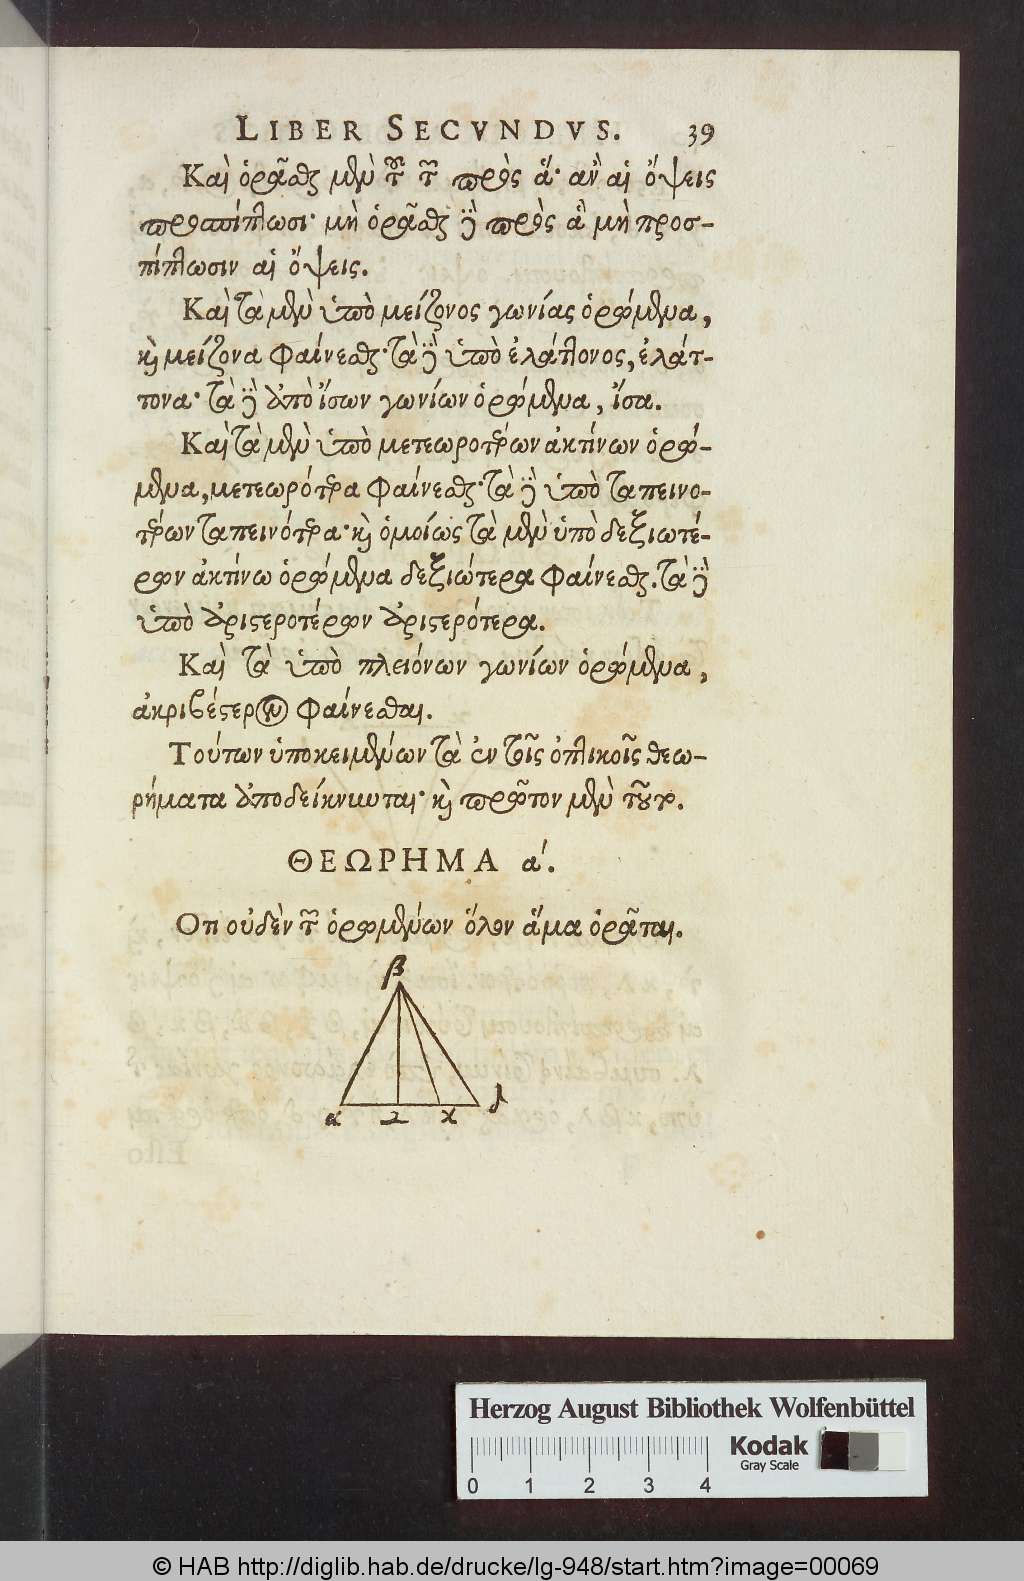 LIBER SECVNDVS. 39
Καὶ ὁρᾶσθαι μὲν ταῦτα πρὸς ἃ ἂν αἱ ὄψεις
προσπίπτωσι· μὴ ὁρᾶσθαι δὲ πρὸς ἃ μὴ προσ-
πίπτωσιν αἱ ὄψεις.
Καὶ τὰ μὲν ὑπὸ μείζονος γωνίας ὁρώμενα,
καὶ μείζονα φαίνεσθαι· τὰ δὲ ὑπὸ ἐλάττονος, ἐλάτ-
τονα· τὰ δὲ ὑπὸ ἴσων γωνίων ὁρώμενα, ἴσα.
Καὶ τὰ μὲν ὑπὸ μετεωροτέρων ἀκτίνων ὁρώ-
μενα, μετεωρότερα φαίνεσθαι· τὰ δὲ ὑπὸ ταπεινο-
τέρων ταπεινότερα· καὶ ὁμοίως τὰ μὲν ὑπὸ δεξιωτέ-
ρων ἀκτίνω ὁρώμενα δεξιώτερα φαίνεσθαι. τὰ δὲ
ὑπὸ ἀριστεροτέρων ἀριστερότερα.
Καὶ τὰ ὑπὸ πλειόνων γωνίων ὁρώμενα,
ἀκριβέστερον φαίνεσθαι.
Τούτων ὑποκειμένων τὰ ἐν τοῖς ὀπτικοῖς θεω-
ρήματα ἀποδείκνυται· καὶ πρῶτον μὲν τοῦτο.
ΘΕΩΡΗΜΑ α΄.
Οτι οὐδὲν τῶν ὁρωμένων ὅλον ἅμα ὁρᾶται.
β
α γ κ δ
Herzog August Bibliothek Wolfenbüttel
Kodak
Gray Scale
0 1 2 3 4
© HAB http://diglib.hab.de/drucke/lg-948/start.htm?image=00069